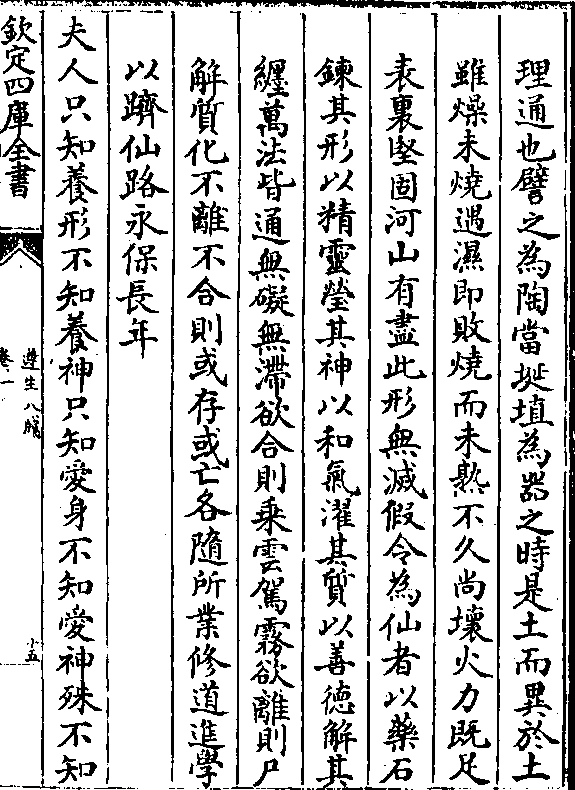 理通也譬之為陶當埏埴為器之時是土而異於土
雖燥未燒遇濕即敗燒而未熟不久尚壞火力既足
表裏堅固河山有盡此形無滅假令為仙者以藥石
鍊其形以精靈瑩其神以和氣濯其質以善德解其
纒萬法皆通無礙無滯欲合則乘雲駕霧欲離則尸
解質化不離不合則或存或亡各隨所業修道進學
以躋仙路永保長年
夫人只知養形不知養神只知愛身不知愛神殊不知
欽定四庫全書
遵生八牋
卷一
十五